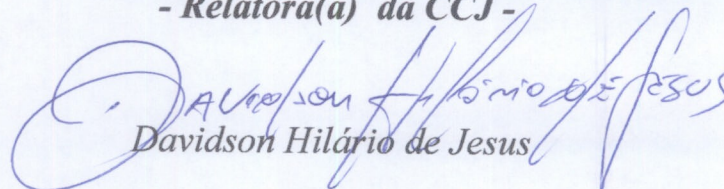 - Relatora(a) da CCJ -
Davidson Hilário de Jesus
Davidson Hilário de Jesus